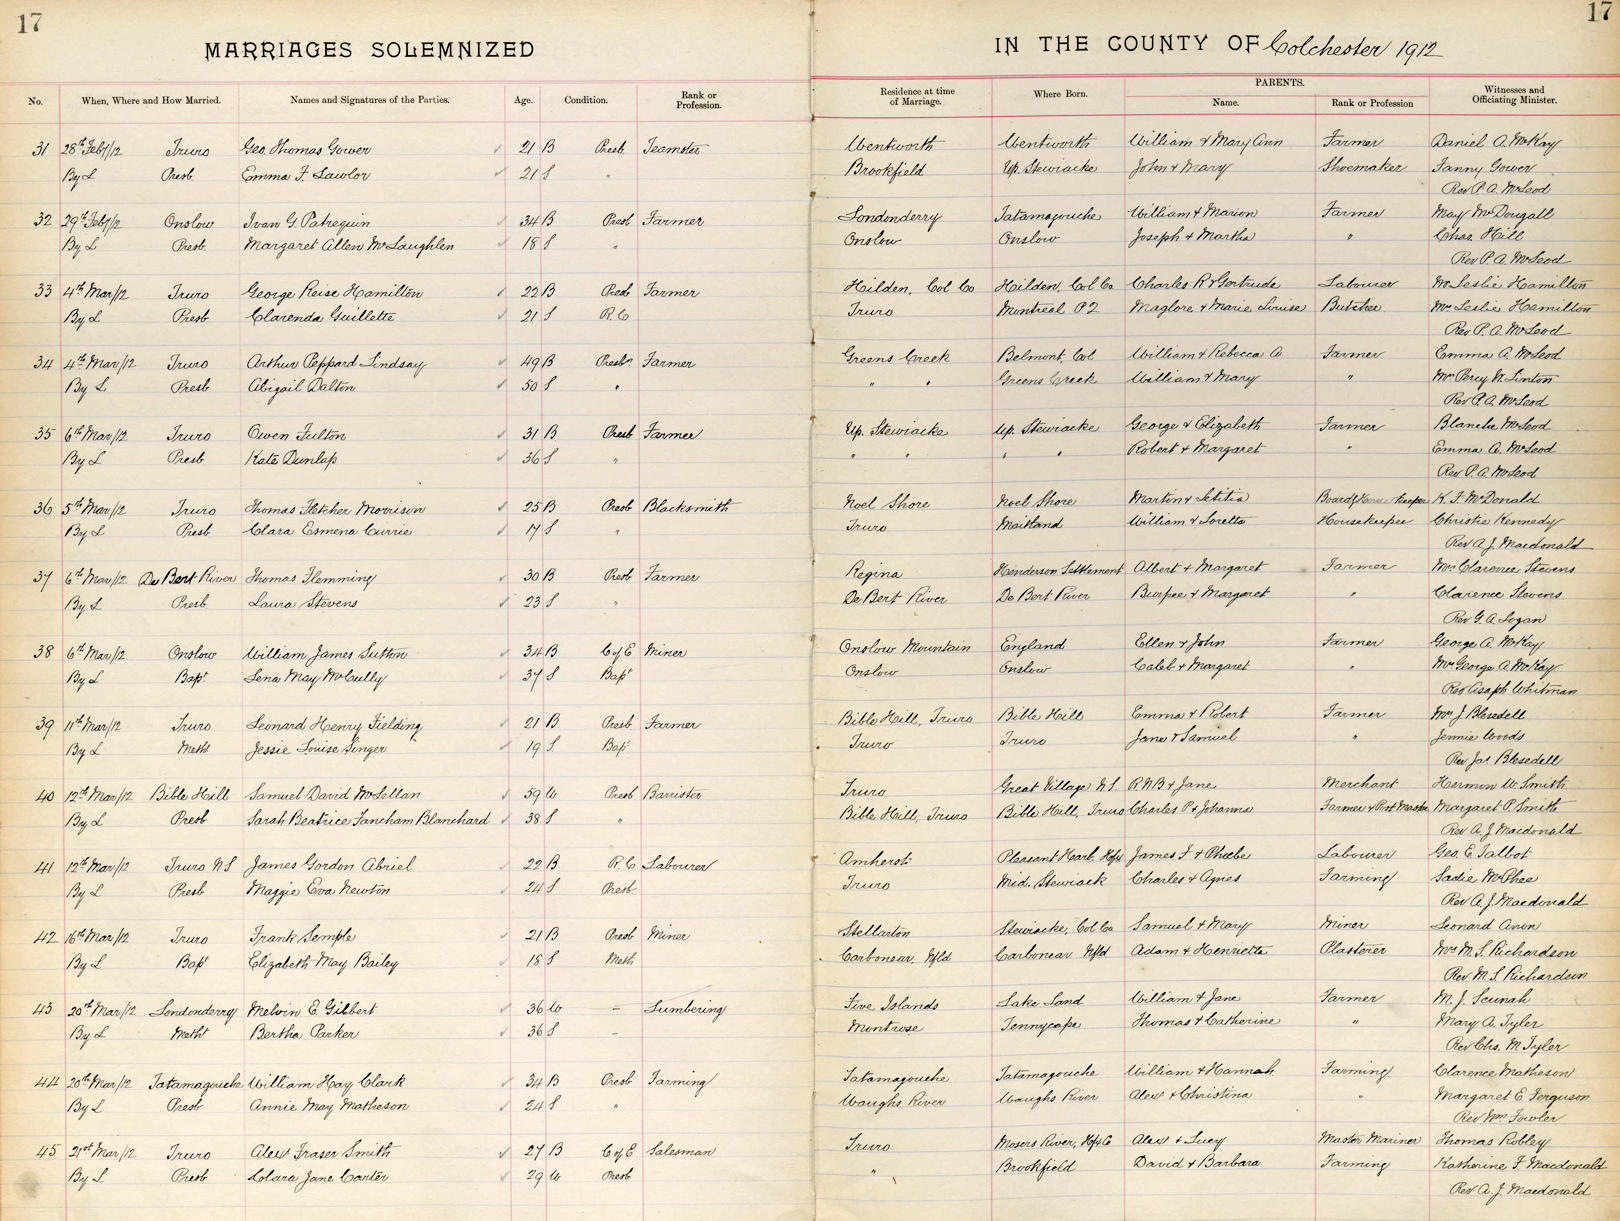 17
17
MARRIAGES SOLEMNIZED
IN THE COUNTY OF Colchester 1912
No. When, Where and How Married. Names and Signatures of the Parties. Age. Condition. Rank or Profession. Residence at time of Marriage. Where Born. PARENTS. Name. Rank or Profession Witnesses and Officiating Minister.
31 28th Feb/12 Truro Geo. Thomas Gower 21 B Presb. Teamster Wentworth Wentworth William & Mary Ann Farmer Daniel A. McKay
By L Presb. Emma F. Lawlor 21 S " Brookfield Up. Stewiacke John & Mary Shoemaker Fanny Gower
Rev P. A. McLeod
32 29th Feb/12 Onslow Ivan G. Patrequin 34 B Presb Farmer Londonderry Tatamagouche William & Marion Farmer May McDougall
By L Presb. Margaret Allen McLaughlen 18 S " Onslow Onslow Joseph & Martha " Chas. Hill
Rev P. A. McLeod
33 4th Mar/12 Truro George Reise Hamilton 22 B Presb Farmer Hilden, Col Co Hilden, Col Co Charles R & Gertrude Labourer Mr Leslie Hamilton
By L Presb Clarenda Guillette 21 S R.C Truro Montreal P2 Maglore & Marie Louise Butcher Mrs Leslie Hamilton
Rev P. A. McLeod
34 4th Mar/12 Truro Arthur Peppard Lindsay 49 B Presbn Farmer Greens Creek Belmont, Col William & Rebecca A Farmer Emma A. McLeod
By L Presb Abigail Dalton 50 S " " " Greens Creek William & Mary " Mrs Percy W. Linton
Rev P. A. McLeod
35 6th Mar/12 Truro Owen Fulton 31 B Presb Farmer Up. Stewiacke Up. Stewiacke George & Elizabeth Farmer Blanche McLeod
By L Presb Kate Dunlap 36 S " " " " " Robert & Margaret " Emma A. McLeod
Rev P. A. McLeod
36 5th Mar/12 Truro Thomas Fletcher Morrison 25 B Presb Blacksmith Noel Shore Noel Shore Martin & Letitia Boardg House keeper K. F. McDonald
By L Presb Clara Esmena Currie 17 S " Truro Maitland William & Loretta Housekeeper Christie Kennedy
Rev A. J. Macdonald
37 6th Mar/12 De Bert River Thomas Flemming 30 B Presb Farmer Regina Henderson Settlement Albert & Margaret Farmer Mrs Clarence Stevens
By L Presb. Laura Stevens 23 S " De Bert River De Bert River Burpee & Margaret " Clarence Stevens
Rev G. A. Logan
38 6th Mar/12 Onslow William James Sutton 34 B C of E Miner Onslow Mountain England Ellen & John Farmer George A. McKay
By L Bapt Lena May McCully 37 S Bapt Onslow Onslow Caleb & Margaret " Mrs George A. McKay
Rev Asaph Whitman
39 11th Mar/12 Truro Leonard Henry Fielding 21 B Presb. Farmer Bible Hill, Truro Bible Hill Emma & Robert Farmer Mrs J Blesedell
By L Meth Jessie Louise Singer 19 S Bapt Truro Truro Jane & Samuel " Jennie Woods
Rev Jas. Blesedell
40 12th Mar/12 Bible Hill Samuel David McLellan 59 W Presb Barrister Truro Great Village N.S. R.N.B & Jane Merchant Hermon W. Smith
By L Presb Sarah Beatrice Fancham Blanchard 38 S " Bible Hill, Truro Bible Hill, Truro Charles P & Johanna Farmer & Post Master Margaret P. Smith
Rev A. J. Macdonald
41 12th Mar/12 Truro N S James Gordon Abriel 22 B R.C Labourer Amherst Pleasant Harb. Hfx James F & Phoebe Labourer Geo. E. Talbot
By L Presb. Maggie Eva Newton 24 S Presb Truro Mid. Stewiack Charles & Agnes Farming Sadie McPhee
Rev A. J. Macdonald
42 16th Mar/12 Truro Frank Semple 21 B Presb Miner Stellarton Stewiacke, Col Co Samuel & Mary Miner Leonard Anon
By L Bapt Elizabeth May Bailey 18 S Meth Carbonear, Nfld Carbonear Nfld Adam & Henrietta Plasterer Mrs M. S. Richardson
Rev M. S. Richardson
43 20th Mar/12 Londonderry Melvin E. Gilbert 36 W – Lumbering Five Islands Lake Land William & Jane Farmer M. J. Scunah
By L Metht Bertha Parker 36 S – Montrose Tennycape Thomas & Catherine " Mary A. Tyler
Rev Chs. M. Tyler
44 20th Mar/12 Tatamagouche William Hay Clark 34 B Presb Farming Tatamagouche Tatamagouche William & Hannah Farming Clarence Matheson
By L Presb Annie May Matheson 24 S " Waughs River Waughs River Alex & Christina " Margaret E Ferguson
Rev Wm. Fowler
45 21st Mar/12 Truro Alex Fraser Smith 27 B C of E Salesman Truro Mosers River, Hfx Co Alex & Lucy Master Mariner Thomas Robley
By L Presb Clara Jane Carter 29 W Presb " Brookfield David & Barbara Farming Katherine F Macdonald
Rev A. J. Macdonald